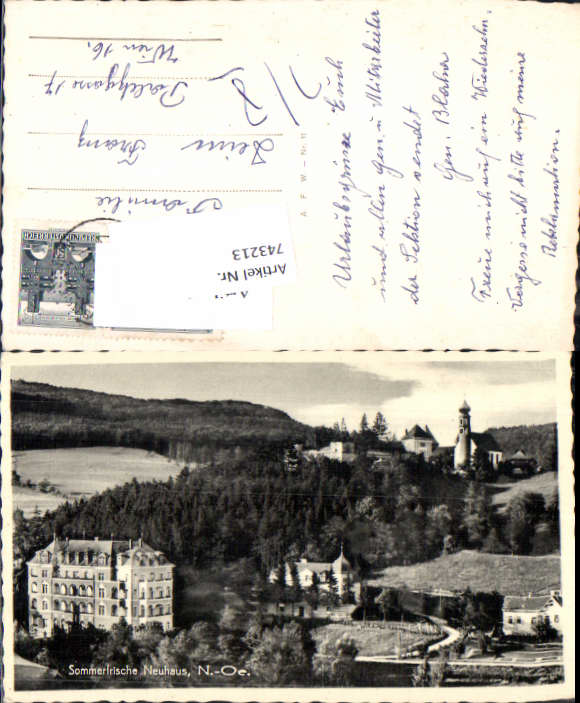 Urlaubsgrüsse Euch
und allen Gen. u Mitarbeiter
der Sektion sendet
Gen. Blaha
Freue mich auf ein Wiedersehn.
Vergesse nicht bitte auf meine
Reklamation.
A. F. W. - Nr. 11
Familie
Franz
Wien 16.
REPUBLIK ÖSTERREICH
Artikel Nr.
743213
Sommerfrische Neuhaus, N.-Oe.